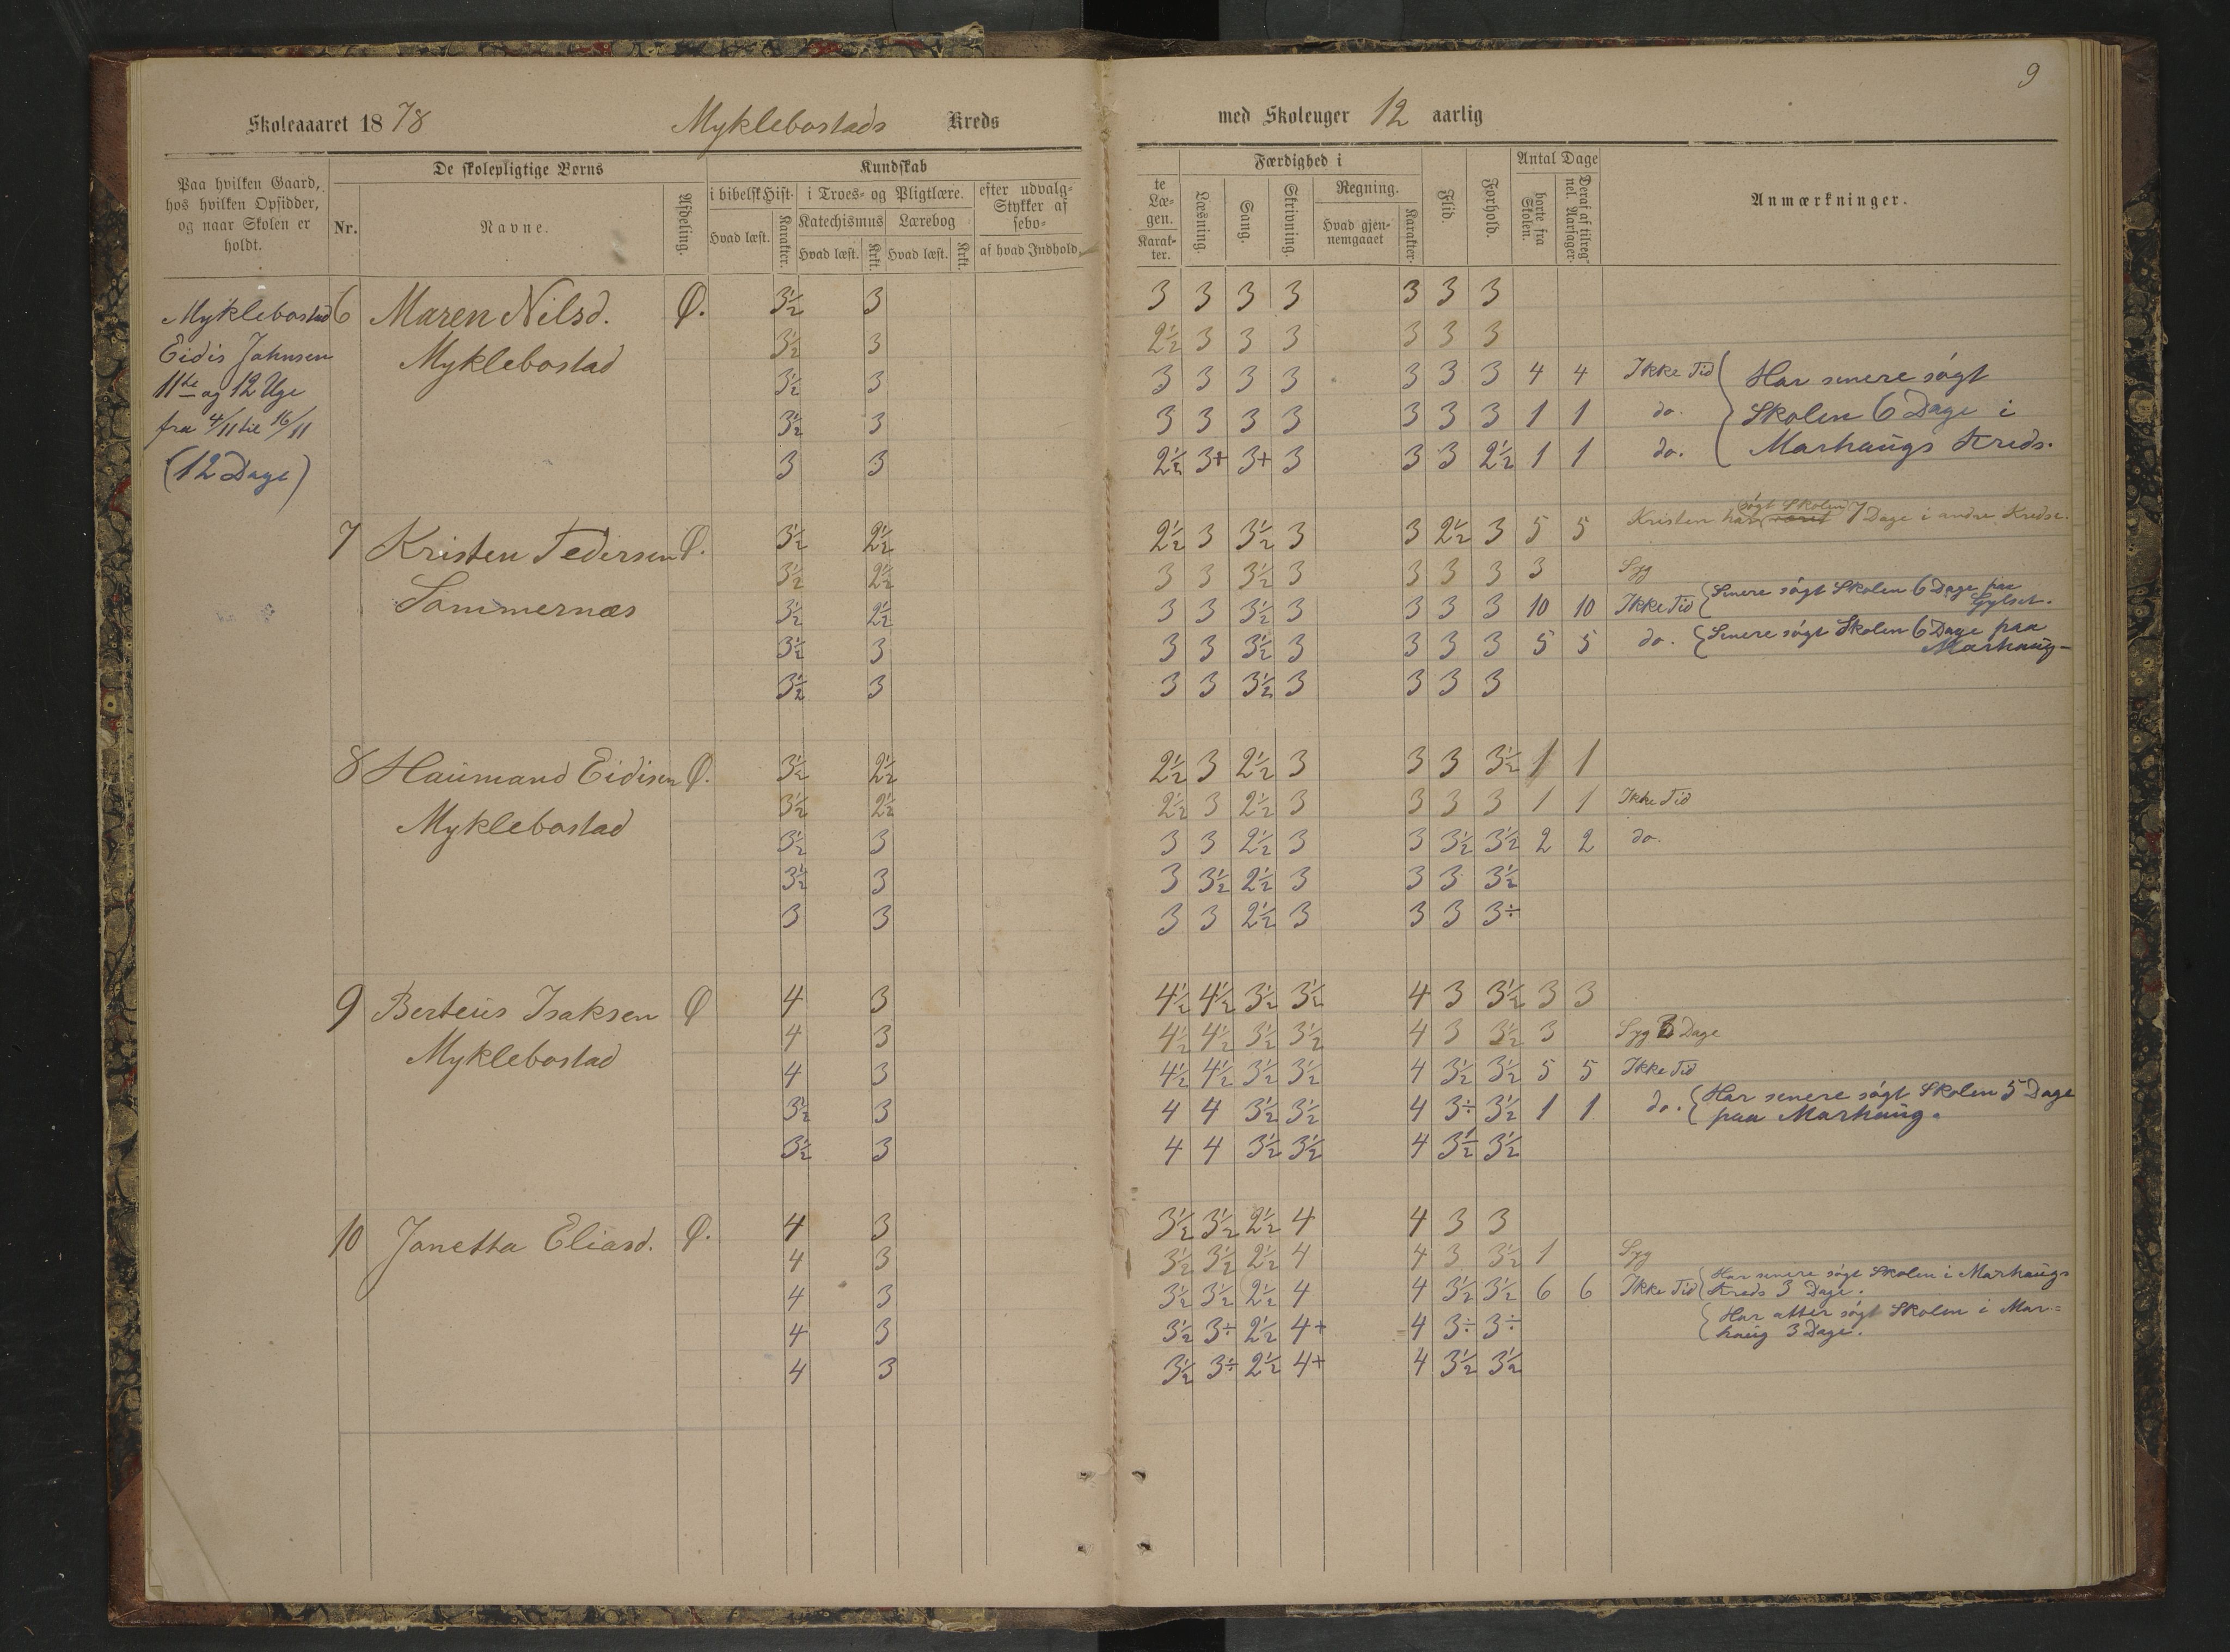 9
Skoleaaret 1878 Myklebostads Kreds med Skoleuger 12 aarlig
Paa hvilken Gaard, hos hvilken Opsidder, og naar Skolen er holdt.
De skolepligtige Børns
Nr.
Navne.
Afdeling.
Kundskab
i bibelsk Hist.
Hvad læst.
Karakter.
i Troes- og Pligtlære.
Katechismus
Hvad læst.
Krkt.
Lærebog
Hvad læst.
Krkt.
efter udvalg-
Stykker af
sebo-
af hvad Indhold
te
Læ-
gen.
Karak-
ter.
Færdighed i
Læsning.
Sang.
Skrivning.
Regning.
Hvad gjen-
nemgaaet
Karakter.
Flid.
Forhold.
Antal Dage
borte fra Skolen.
Deraf af tilreg-
nel. Aarsager.
Anmærkninger.
Myklebostad
Eidis Johnsen
11te og 12 Uge
fra 4/11 til 16/11
(12 Dage)
6 Maren Nilsd. Ø. 3½ 3 3 3 3 3 3 3 3
Myklebostad 3½ 3 2½ 3 3 3 3 3 3
3½ 3 3 3 3 3 3 3 3 4 4 Ikke Tid Har senere søgt
3½ 3 3 3 3 3 3 3 3 1 1 do. Skolen 6 Dage i
3 3 2½ 3+ 3+ 3 3 3 2½ 1 1 do. Marhaugs Kreds.
7 Kristen Pedersen Ø. 3½ 2½ 2½ 3 3½ 3 3 2½ 3 5 5 Kristen har søgt Skolen 7 Dage i andre Kredse.
3½ 2½ 3 3 3½ 3 3 3 3 3 Syg
Sommernæs 3½ 2½ 3 3 3½ 3 3 3 3 10 10 Ikke Tid Senere søgt Skolen 6 Dage paa
Gylset.
3½ 3 3 3 3½ 3 3 3 3 5 5 do. Senere søgt Skolen 6 Dage paa
Marhaug
3½ 3 3 3 3½ 3 3 3 3
8 Haumand Eidisen Ø. 3½ 2½ 2½ 3 2½ 3 3 3 3½ 1 1
3½ 2½ 2½ 3 2½ 3 3 3 3 1 1 Ikke Tid
Myklebostad 3½ 3 3 3 2½ 3 3 3½ 3½ 2 2 do.
3½ 3 3 3½ 2½ 3 3 3 3½
3 3 3 3 2½ 3 3 3 3÷
9 Berteus Isaksen Ø 4 3 4½ 4½ 3½ 3½ 4 3 3½ 3 3
4 3 4½ 4½ 3½ 3½ 4 3 3½ 3 Syg 3 Dage
Myklebostad 4 3 4½ 4½ 3½ 3½ 4 3½ 3½ 5 5 Ikke Tid
3½ 3 4 4 3½ 3½ 4 3÷ 3½ 1 1 do. Har senere søgt Skolen 5 Dage
paa Marhaug.
3½ 3 4 4 3½ 3½ 4 3½ 3½
10 Janetta Eliasd. Ø. 4 3 3½ 3½ 2½ 4 4 3 3
4 3 3½ 3½ 2½ 4 4 3 3½ 1 Syg
4 3 3½ 3½ 2½ 4 4 3½ 3½ 6 6 Ikke Tid Har senere søgt Skolen i Marhaugs
Kreds 3 Dage.
4 3 3½ 3÷ 2½ 4+ 4 3÷ 3÷ Har atter søgt Skolen i Mar=
haug 3 Dage.
4 3 3½ 3÷ 2½ 4+ 4 3½ 3½